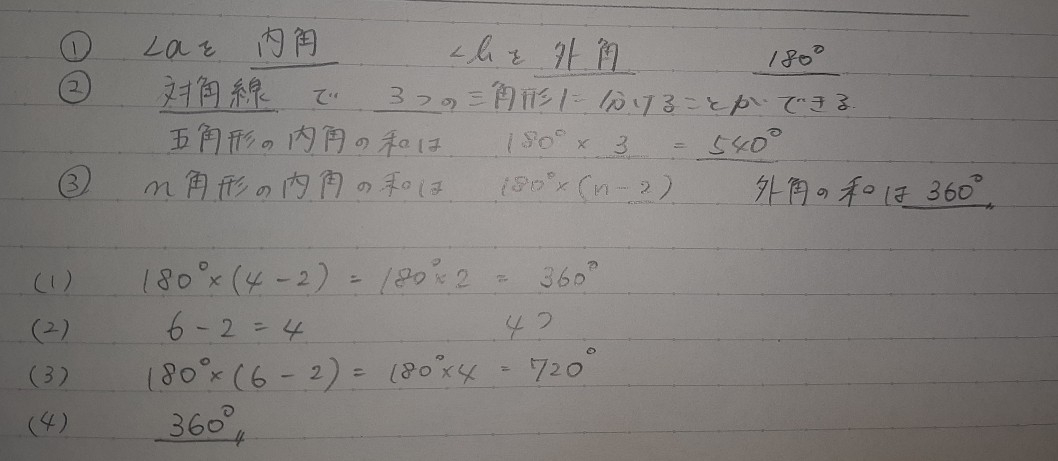 ① ∠aを 内角 ∠bを 外角 180°
② 対角線 で 3つの三角形に分けることができる
五角形の内角の和は 180° × 3 = 540°
③ n角形の内角の和は 180°×(n-2) 外角の和は 360°
(1) 180°×(4-2) = 180°×2 = 360°
(2) 6-2=4 4つ
(3) 180°×(6-2) = 180°×4 = 720°
(4) 360°